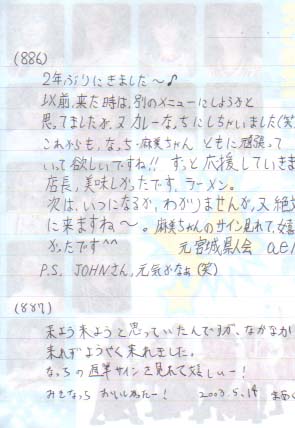 (886)
2年ぶりにきました〜♪
以前、来た時は、別のメニューにしようかと
思ってましたが、又カレーなっちにしちゃいました(笑)
これからも、なっち・麻美ちゃん ともに頑張って
いって欲しいですね!! ずっと応援していきま
店長、美味しかったです、ラーメン。
次は、いつになるか、わかりませんが、又絶対
に来ますね〜。麻美ちゃんのサイン見れて、嬉
かったです^^ 元宮城県会
P.S. JOHNさん、元気かなぁ(笑)
(887)
来よう来ようと思っていたんですが、なかなか
来れずようやく来れました。
なっちの直筆サインを見れて嬉しいー!
みそなっち おいしかったー! 2003.5.14